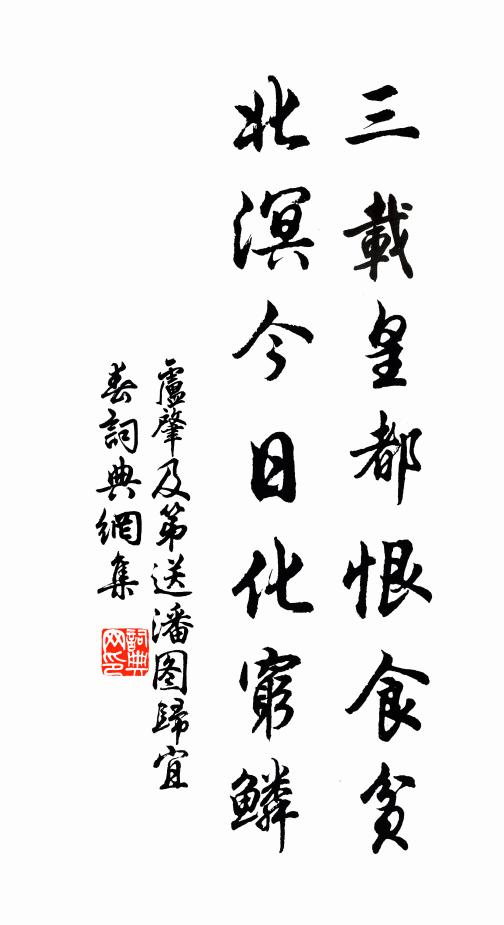 三載皇都恨食貧
北溟今日化窮鱗
盧肇及第送潘图歸宜
春詞典網集
詞典
网印